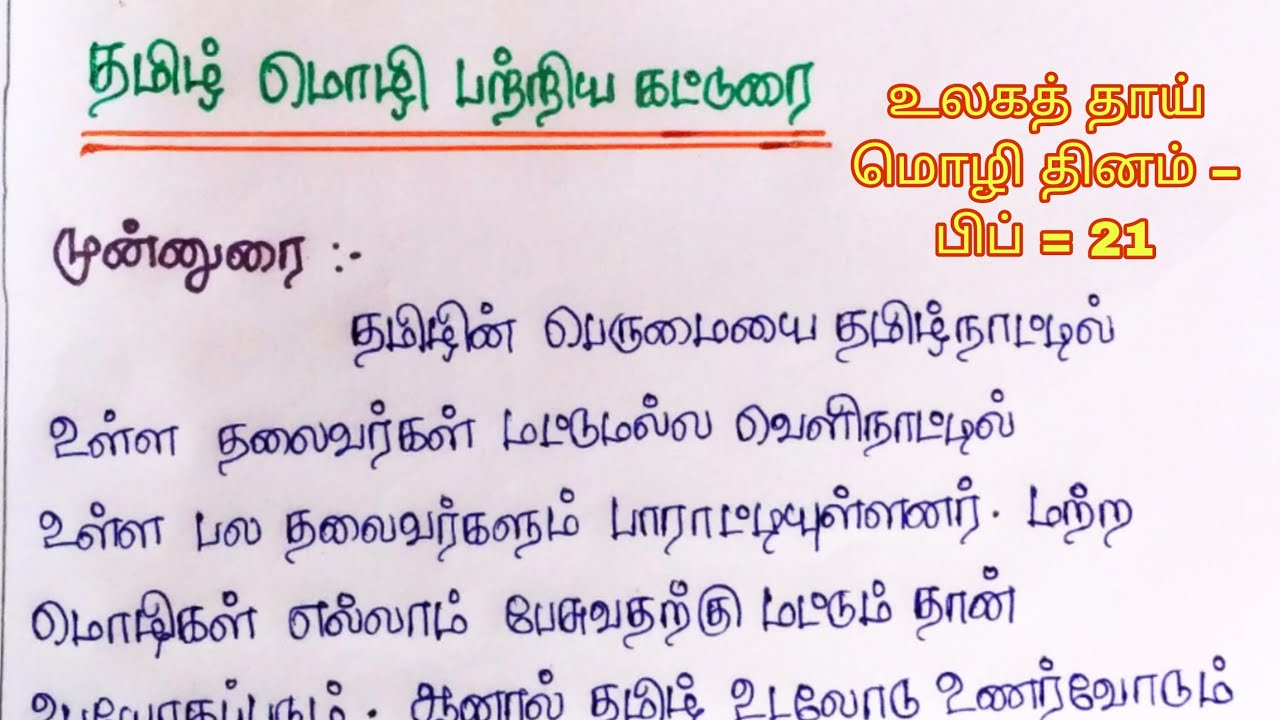 தமிழ் மொழி பற்றிய கட்டுரை
உலகத் தாய்
மொழி தினம் –
பிப் = 21
முன்னுரை :-
தமிழின் பெருமையை தமிழ்நாட்டில்
உள்ள தலைவர்கள் மட்டுமல்ல வெளிநாட்டில்
உள்ள பல தலைவர்களும் பாராட்டியுள்ளனர். மற்ற
மொழிகள் எல்லாம் பேசுவதற்கு மட்டும் தான்
உபயோகப்படும். ஆனால் தமிழ் உடலோடு உணர்வோடும்